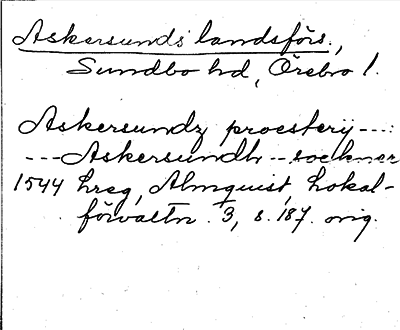 Askersunds landsförs.,
Sundbo hd, Örebro l.
Askersundz proesterij ---:
--- Askersundh -- sockner
1544 hreg, Almquist, Lokal-
förvaltn. 3, s. 187. orig.